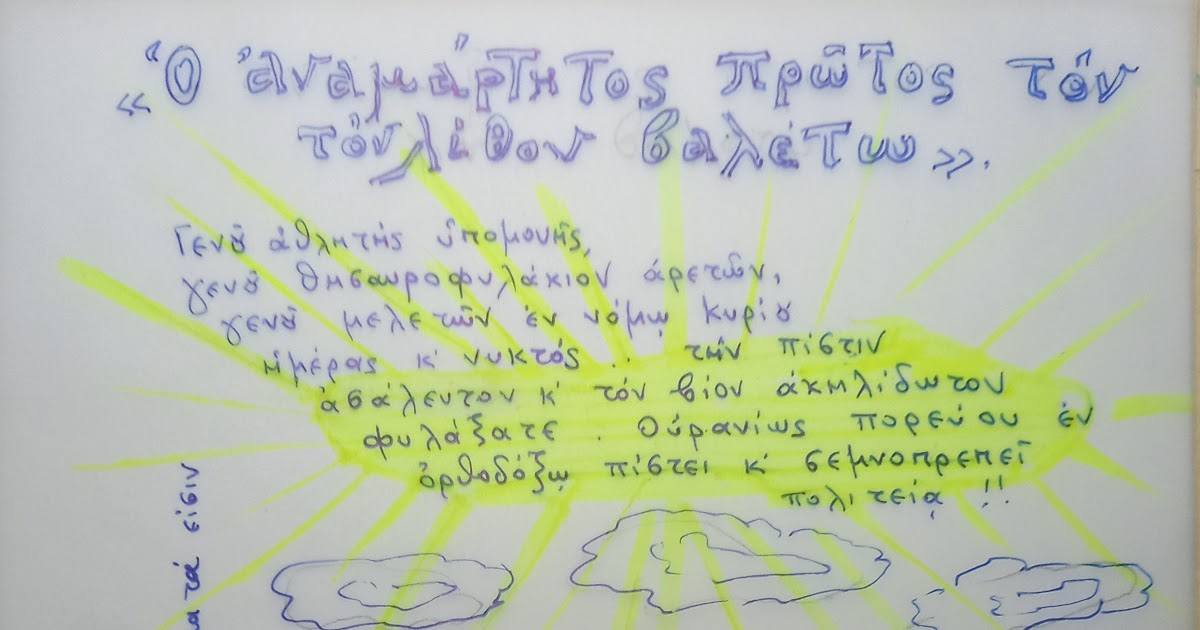 «Ὁ ἀναμάρτητος πρῶτος τὸν
τὸν λίθον βαλέτω».
Γενοῦ ἀθλητής ὑπομονῆς,
γενοῦ θησαυροφυλάκιον ἀρετῶν,
γενοῦ μελετῶν ἐν νόμῳ Κυρίου
ἡμέρας κ' νυκτός .. τήν πίστιν
ἀσάλευτον κ' τόν βίον ἀκηλίδωτον
φυλάξατε . Οὐρανίως πορεύου ἐν
ὀρθοδόξῳ πίστει κ' σεμνοπρεπεῖ
πολιτείᾳ !!
τά εἰσιν